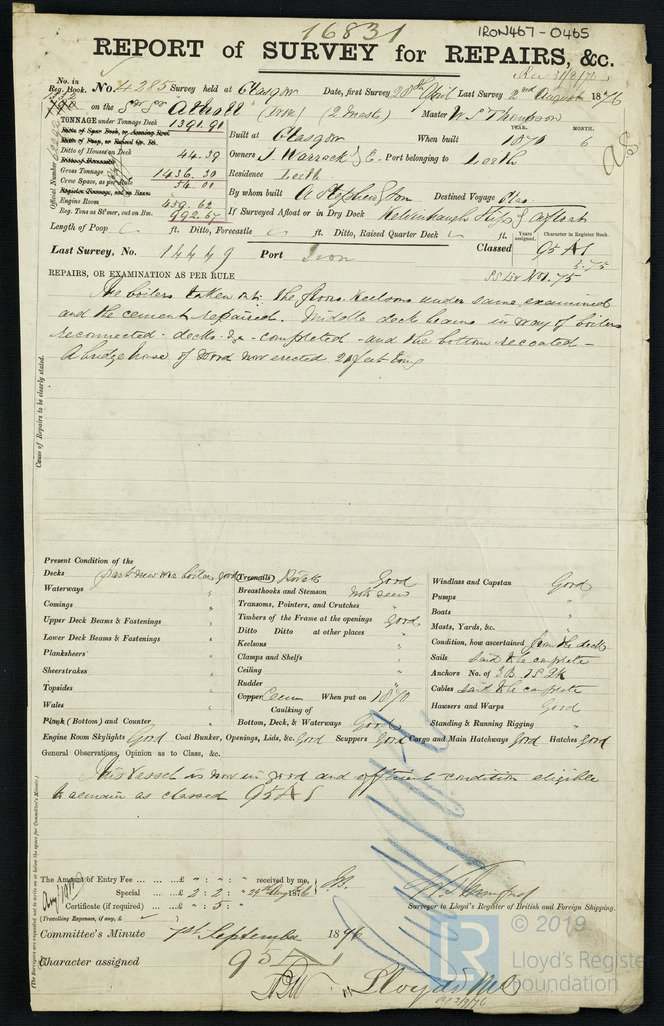 16831
IRON467-0465
REPORT of SURVEY for REPAIRS, &c.
No. in Reg. Book. No. 4285 Survey held at Glasgow Date, first Survey 20th April Last Survey 2nd August 1876
on the Sr Sr Atholl (Iron) (2 Masts) Master W. S. Thompson
TONNAGE under Tonnage Deck 1391.91
Ditto of Spar Deck, or Awning Roof
Ditto of Poop, or Raised Qr. Dk.
Ditto of House on Deck 44.39
Ditto of Forecastle
Gross Tonnage 1436.30
Crew Space, as per Rule 54.01
Register Tonnage, cut on Beam
Engine Room 459.62
Reg. Tons as St'mer, cut on Bm. 992.67
Official Number
Built at Glasgow When built YEAR. 1870 MONTH. 6
Owners J. Warrack & C. Port belonging to Leith
Residence Leith
By whom built A Stephen & Son Destined Voyage
If Surveyed Afloat or in Dry Dock Kelvinhaugh Slip & afloat
Length of Poop ft. Ditto, Forecastle ft. Ditto, Raised Quarter Deck ft.
Years assigned. Character in Register Book.
Last Survey, No. 14449 Port Iron Classed 95 A1
3.75
SS Liv No1.75
REPAIRS, OR EXAMINATION AS PER RULE
The boilers taken out. the floors keelsons under same examined
and the cement repaired. Middle deck beams in way of boilers
reconnected - decks &c - completed - and the bottom recoated -
A bridge house of wood now erected 21 feet long
Cause of Repairs to be clearly stated.
Present Condition of the
Decks part new over boilers good
Waterways "
Comings "
Upper Deck Beams & Fastenings "
Lower Deck Beams & Fastenings "
Planksheers "
Sheerstrakes "
Topsides "
Wales "
Plank (Bottom) and Counter "
Treenails Rivets Good
Breasthooks and Stemson not seen
Transoms, Pointers, and Crutches "
Timbers of the Frame at the openings Good
Ditto Ditto at other places "
Keelsons "
Clamps and Shelfs "
Ceiling "
Rudder "
Copper When put on 1870
Caulking of
Bottom, Deck, & Waterways Good
Windlass and Capstan Good
Pumps "
Boats "
Masts, Yards, &c. "
Condition, how ascertained from the deck
Sails said to be complete
Anchors No. of 3B. 1S. 2K
Cables said to be complete
Hawsers and Warps Good
Standing & Running Rigging "
Engine Room Skylights Good Coal Bunker, Openings, Lids, &c. Good Scuppers Good Cargo and Main Hatchways Good Hatches Good
General Observations, Opinion as to Class, &c.
This vessel is now in good and efficient condition eligible
to remain as classed 95 A 1
The Amount of Entry Fee ... £ " : " : " received by me,
Special ... £ 2 : 2 : " 29th Aug 1876
Certificate (if required) ... £ " : 5 : "
(Travelling Expenses, if any, £ )
Surveyor to Lloyd's Register of British and Foreign Shipping.
Committee's Minute 1st September 1876
Character assigned 95 A 1
Lloyds
© 2019
Lloyd's Register
Foundation